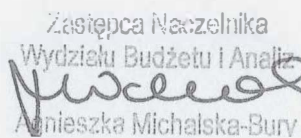 Zastępca Naczelnika
Wydziału Budżetu i Analiz
Agnieszka Michalska-Bury